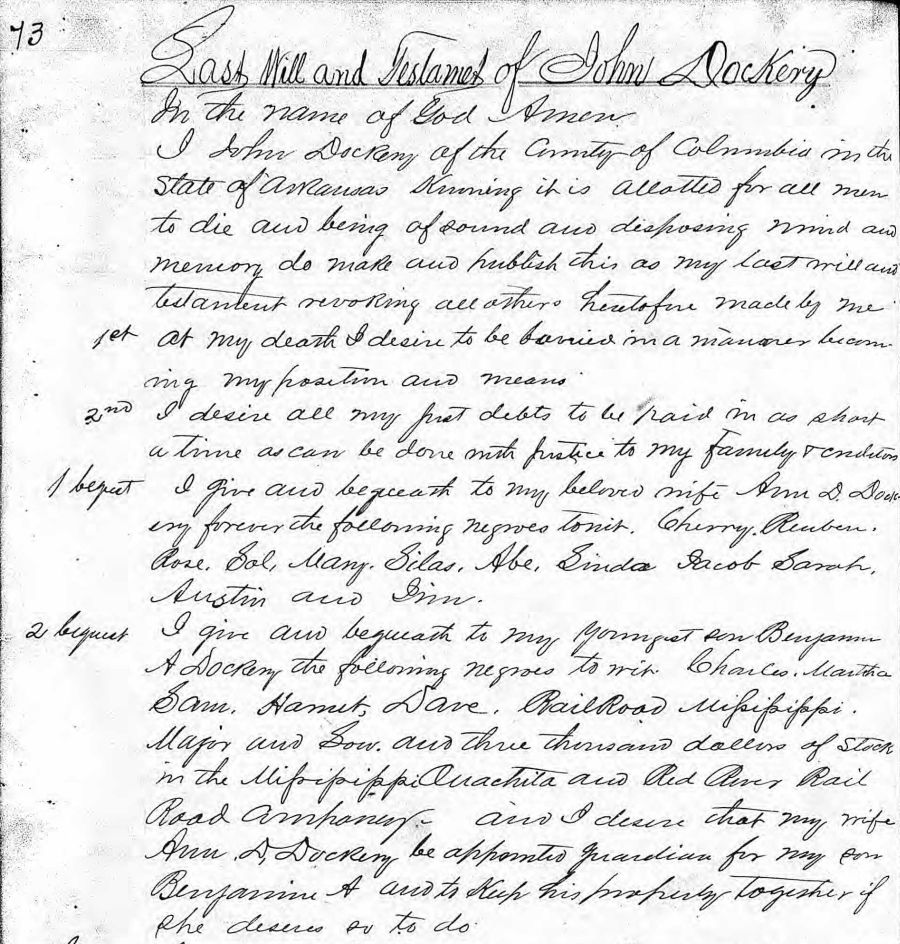 73
Last Will and Testament of John Dockery
In the name of God Amen
I John Dockery of the County of Columbia in the
State of Arkansas Knowing it is allotted for all men
to die and being of sound and disposing mind and
memory do make and publish this as my last will and
testament revoking all others heretofore made by me
1st at my death I desire to be burried in a manner becom-
ing my position and means
2nd I desire all my just debts to be paid in as short
a time as can be done with Justice to my family & creditors
1 bequest I give and bequeath to my beloved wife Ann D. Dock-
ery forever the following negroes towit. Cherry. Reuben.
Rose. Sol. Mary. Silas. Abe. Linda Jacob Sarah.
Austin and
2 bequest I give and bequeath to my youngest son Benjamin
A Dockery the following negroes to wit. Charles. Martha
Sam. Dave. RailRoad Missippippi.
Major and and three thousand dollars of Stock
in the Missippippi Ouachita and Red River Rail
Road Company - and I desire that my wife
Ann D. Dockery be appointed guardian for my son
Benjamine A and to Keep his property together if
she desires so to do